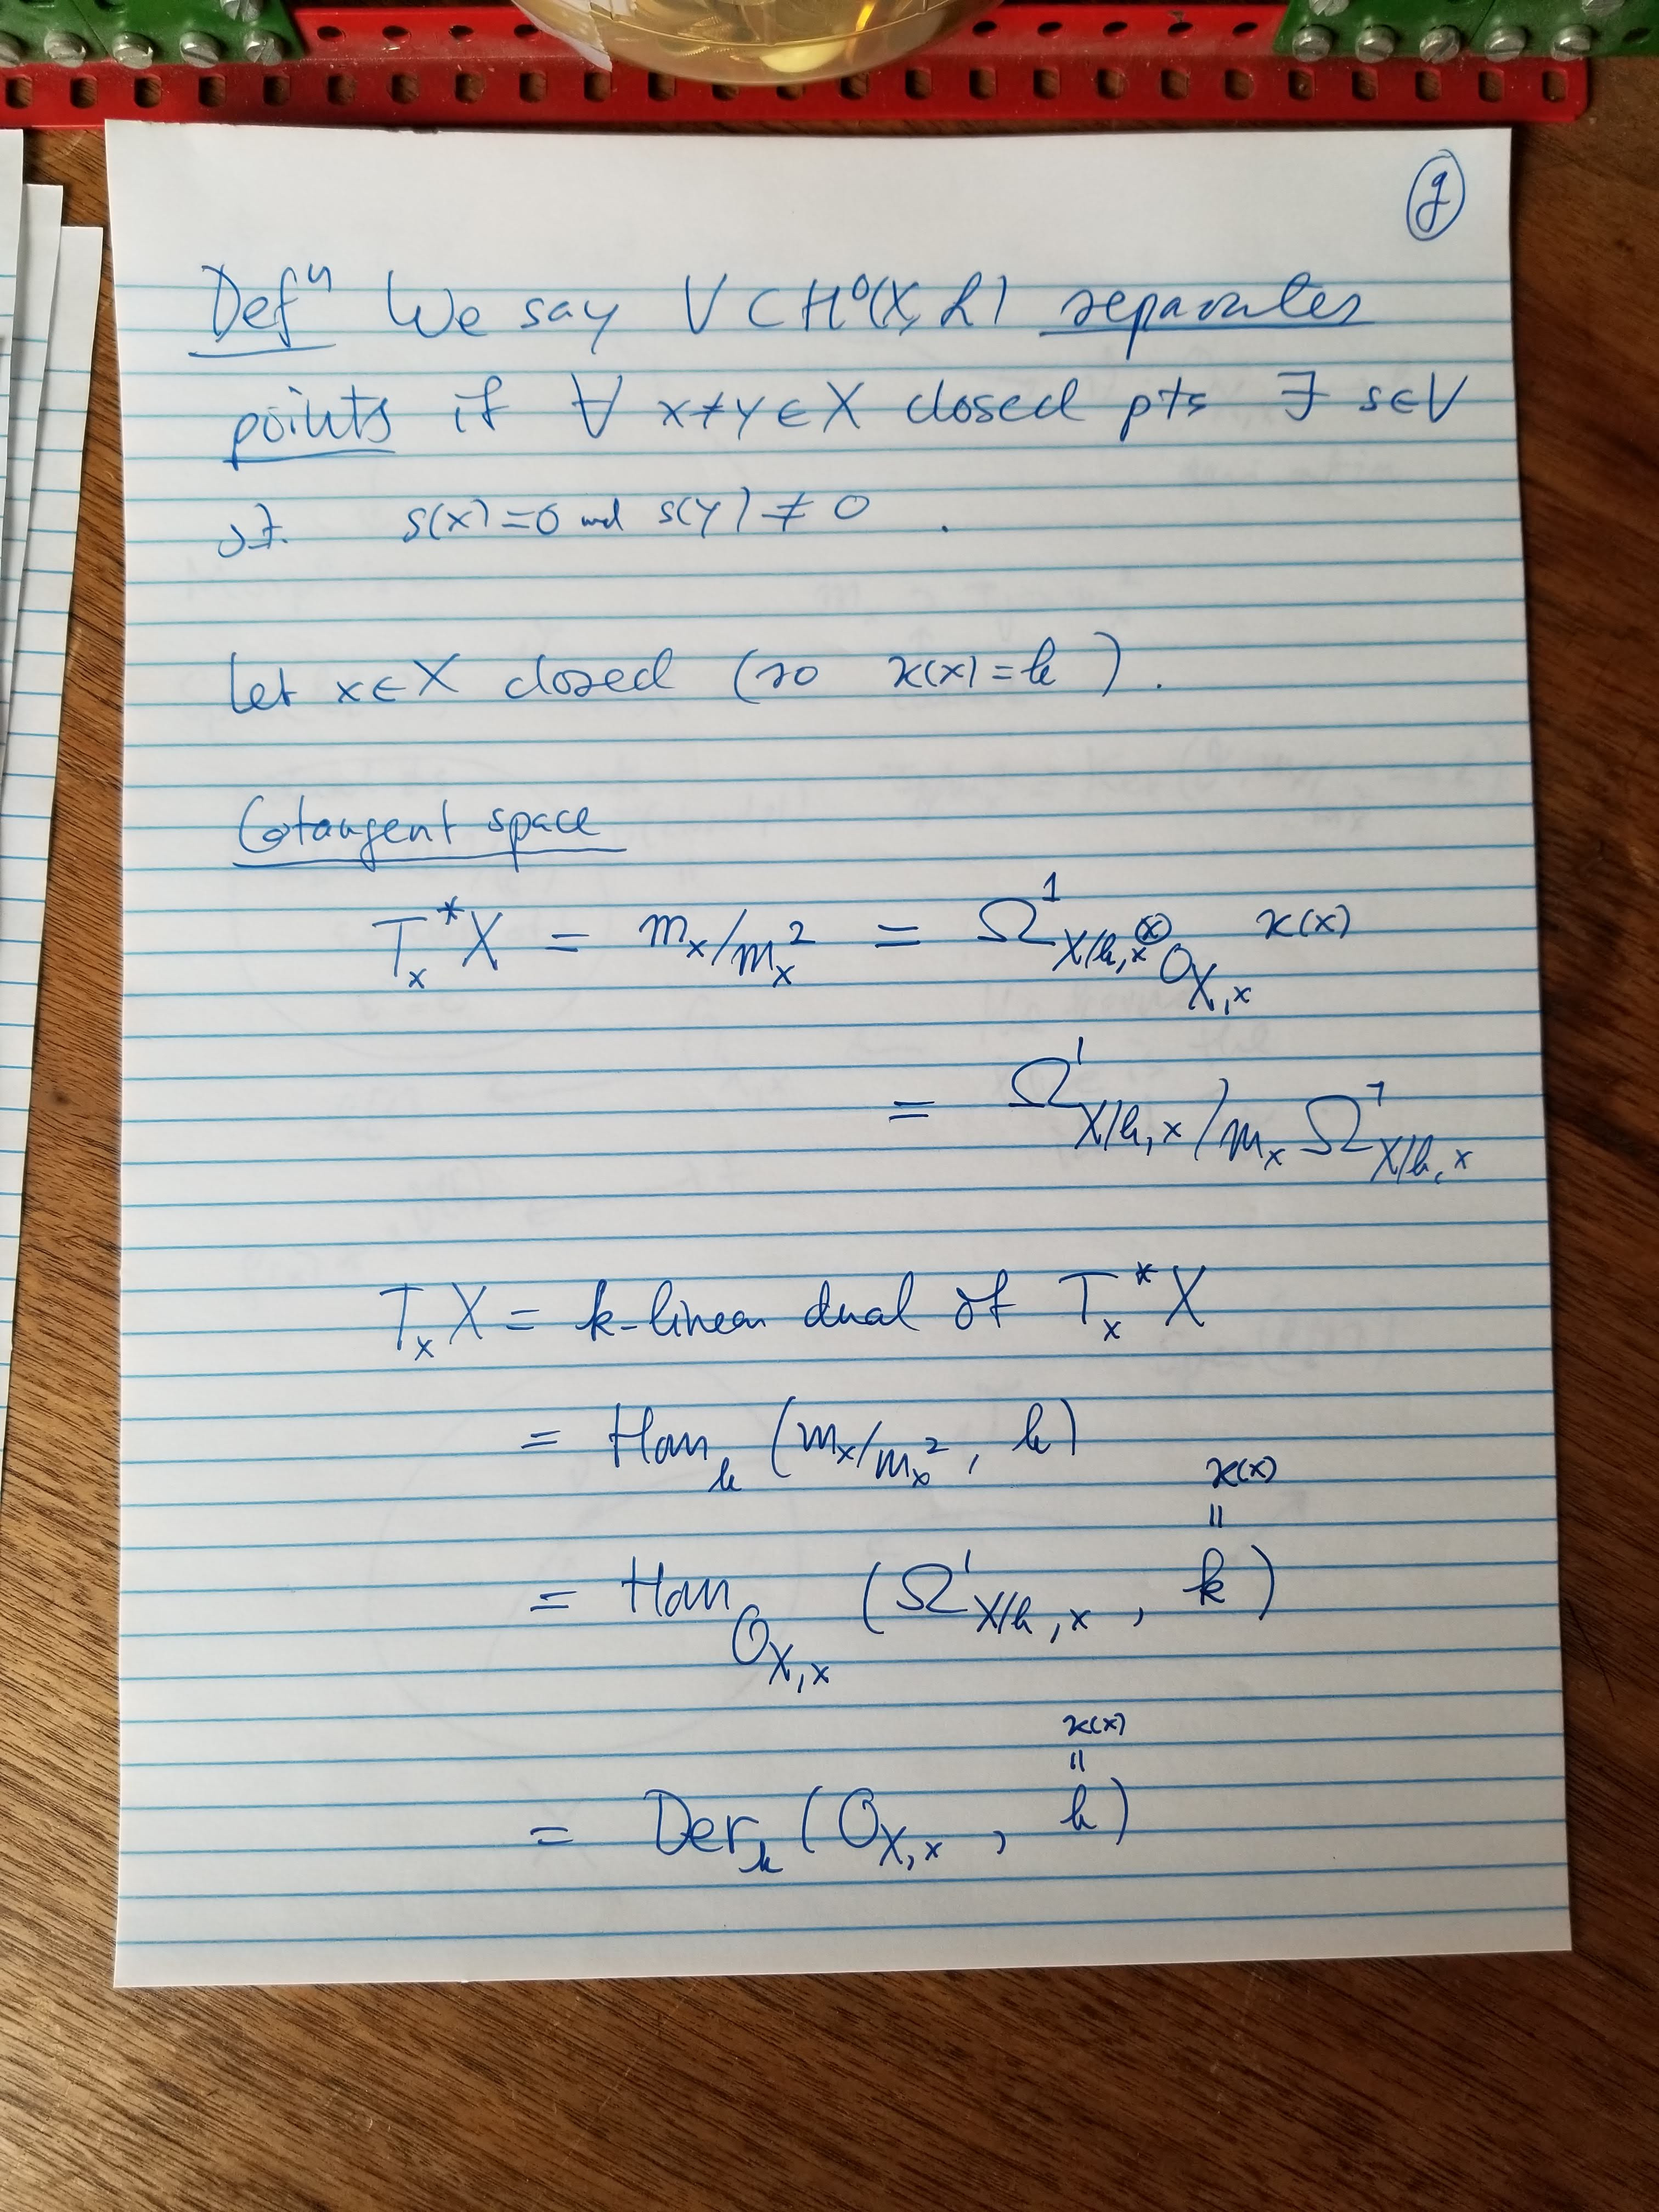 g
Defⁿ We say V ⊂ H⁰(X, ℒ) separates
points if ∀ x≠y ∈ X closed pts ∃ s∈V
st. s(x)=0 and s(y) ≠ 0 .
Let x∈X closed (so κ(x)=k ) .
Cotangent space
T_x^*X = m_x/m_x^2 = Ω^1_{X/k,x} ⊗_{O_{X,x}} κ(x)
= Ω^1_{X/k,x}/m_x Ω^1_{X/k,x}
T_xX = k-linear dual of T_x^*X
= Hom_k (m_x/m_x^2, k)
κ(x)
||
= Hom_{O_{X,x}} (Ω^1_{X/k,x} , k)
κ(x)
||
= Der_k (O_{X,x} , k)